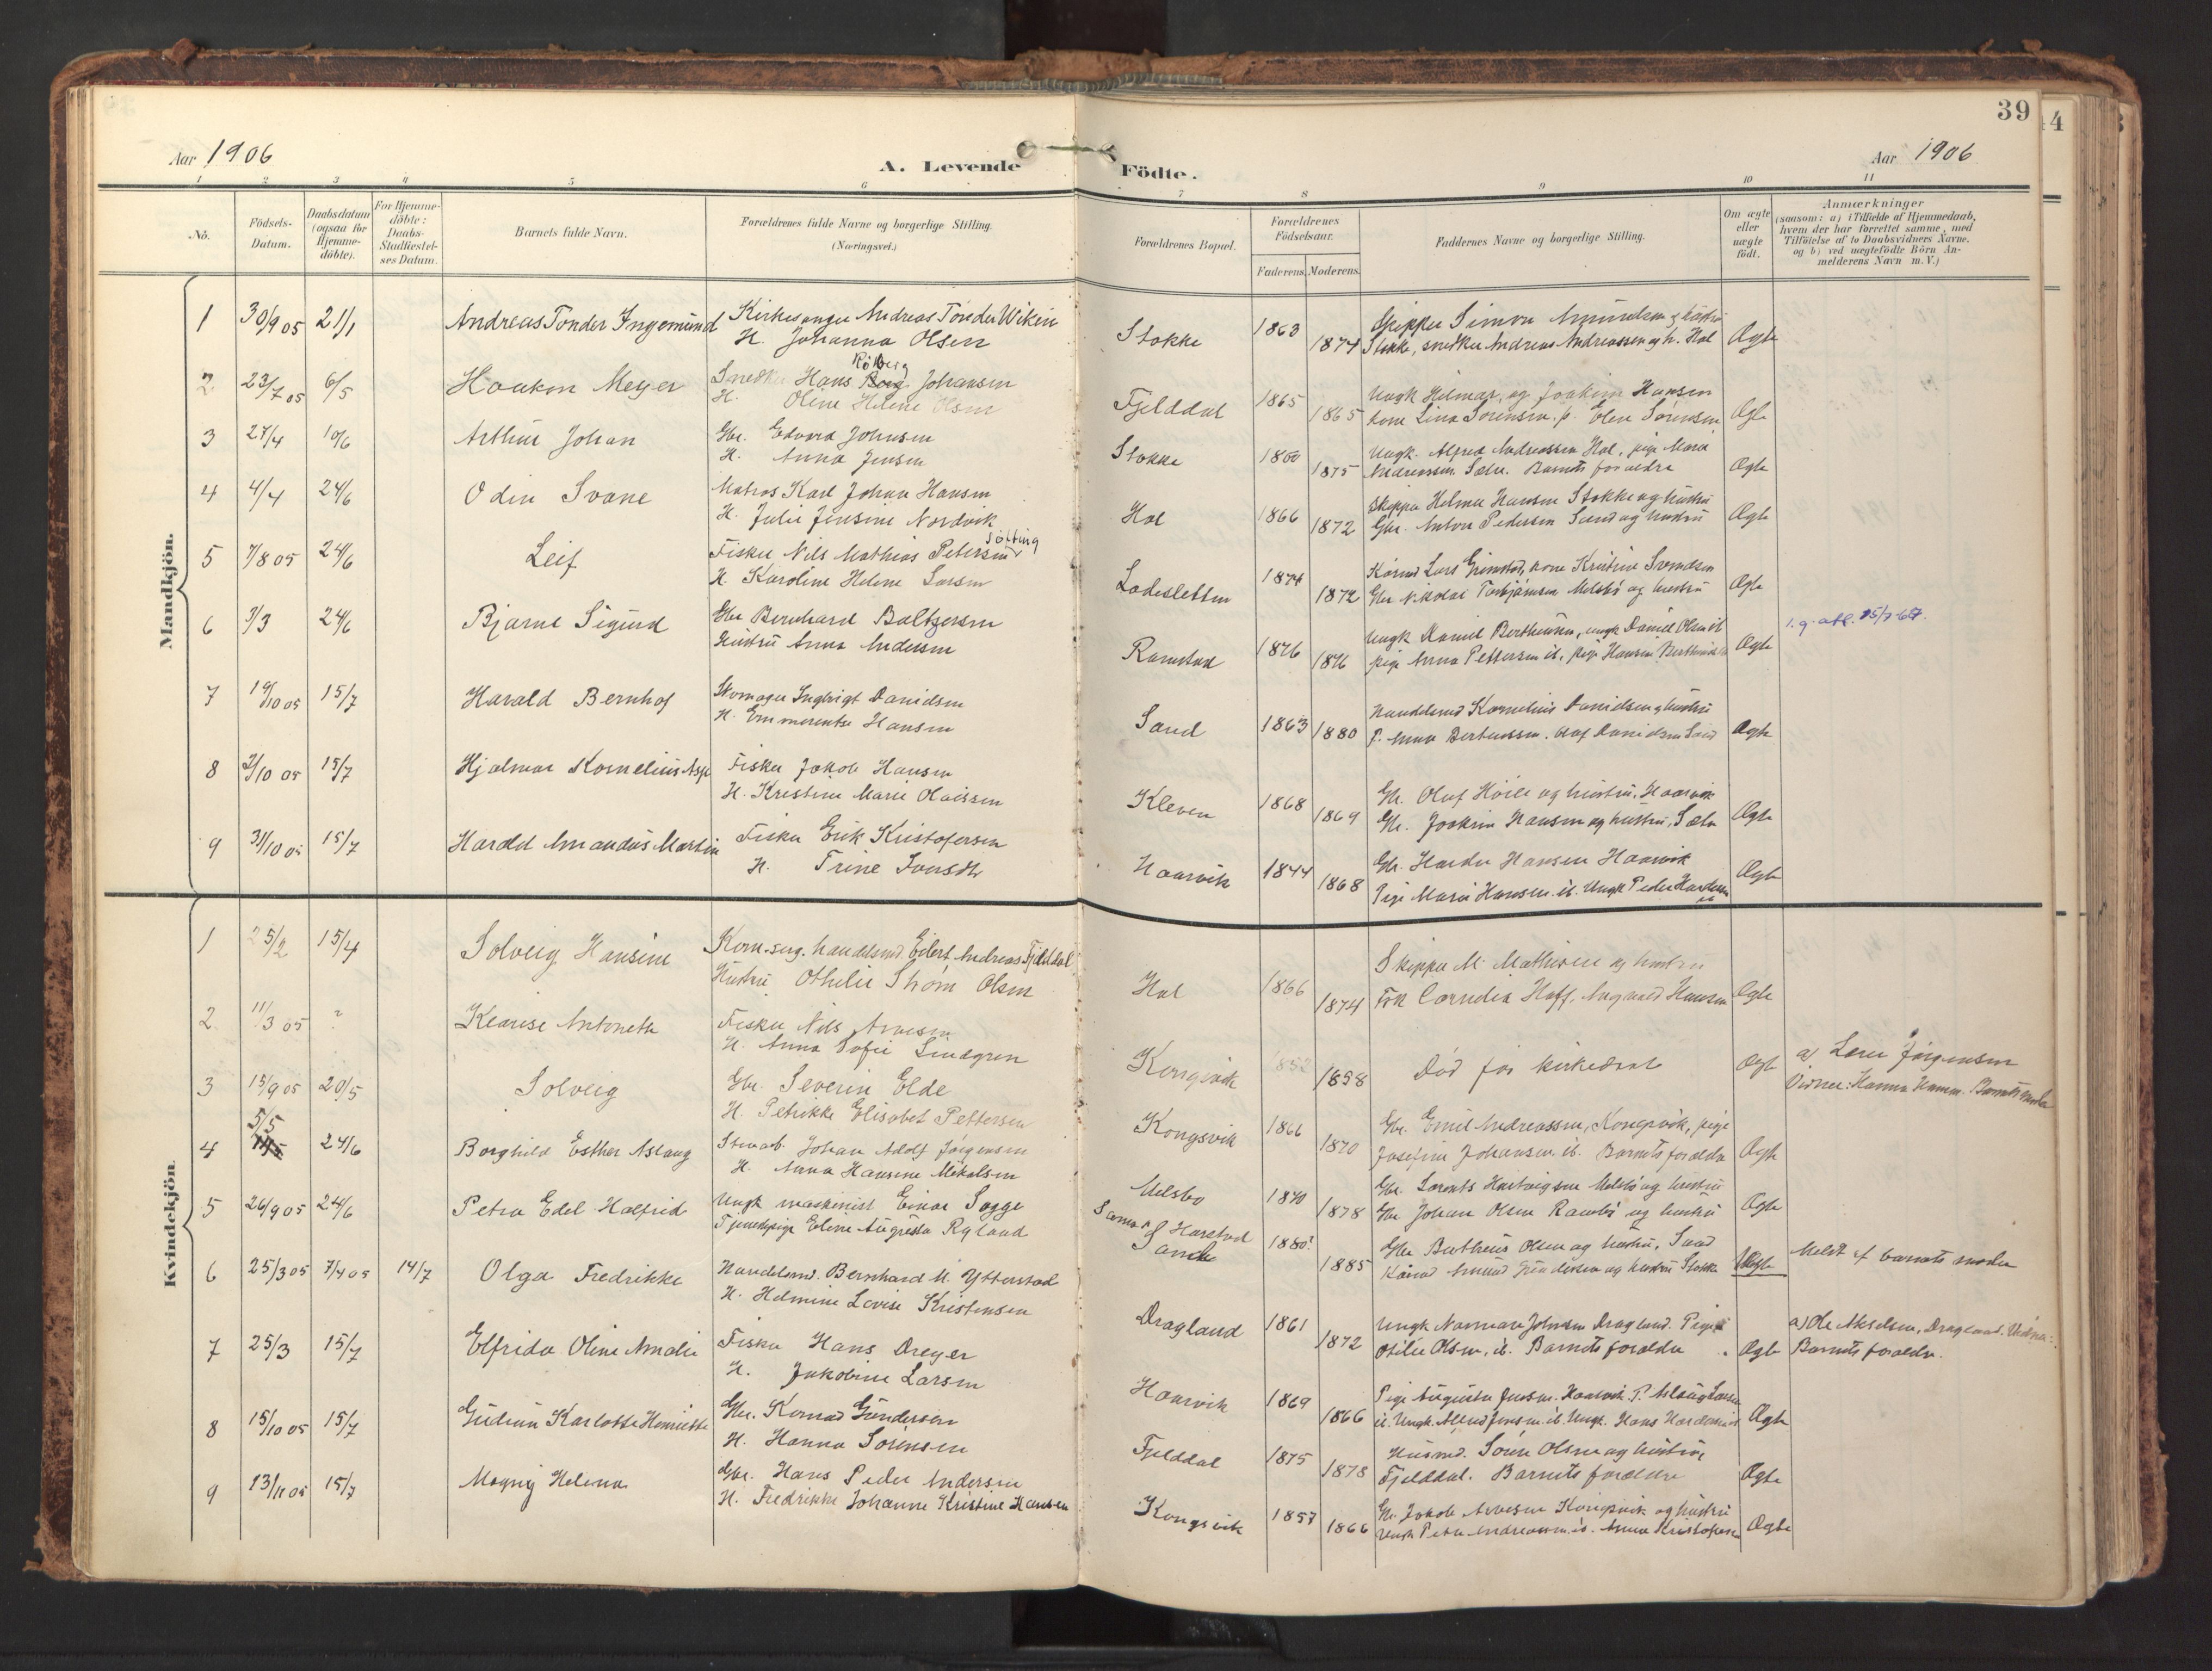 39
Aar 1906
A. Levende
Födte.
Aar 1906
1 2 3 4 5 6 7 8 9 10 11
No.
Födsels-
Datum.
Daabsdatum
(ogsaa for
Hjemme-
döbte).
For Hjemme-
döbte:
Daabs-
Stadfæstel-
ses Datum.
Barnets fulde Navn.
Forældrenes fulde Navne og borgerlige Stilling.
(Næringsvei.)
Forældrenes Bopæl.
Forældrenes
Födselsaar.
Faderens. Moderens.
Faddernes Navne og borgerlige Stilling.
Om ægte
eller
uægte
födt.
Anmærkninger
(saasom: a) i Tilfælde af Hjemmedaab,
hvem der har forrettet samme, med
Tilföielse af to Daabsvidners Navne.
og b) ved uægtefödte Börn An-
melderens Navn m. V.)
Mandkjön.
1 30/9 05 21/1 Andreas Tönder Ingemund Kirkesanger Andreas Tönder Wikin
H. Johanna Olsen
Stokke 1863 1874 Skipper Simon
Stokke, snedker Andreas Andreassen og h. Hol Ægte
2 23/7 05 6/5 Haakon Meyer Snedker Hans Rölberg Johansen
H. Oline Helene Olsen
Fjelddal 1865 1865 Ungk Hilmar og Joakim Hansen
kone Lina Sörensen. p. Elen Sörensen Ægte
3 27/4 10/6 Arthur Johan Gbr. Edvard Johnsen
H. Anna Jensen
Stokke 1860 1875 Ungk. Alfred Andreassen Hol, pige Maria
Andreassen Barnets forældre Ægte
4 4/4 24/6 Odin Svane Matros Karl Johan Hansen
H. Julie Jensine Nordvik
Hol 1866 1872 Skipper Helmer Hansen Stokke og hustru
Gbr. Anton Pedersen Sand og hustru Ægte
5 7/8 05 24/6 Leif Fisker Nils Mathias Petersen Sölting
H. Karoline Helene Larsen
Ladesletten 1874 1872 Lars Grimstad, kone Kristine Svendsen
Gbr Nikolai Torbjörnsen Melsbö og hustru Ægte
6 3/3 24/6 Bjarne Sigurd Gbr Bernhard Baltzersen
Hustru Anna Andersen
Ramstad 1876 1876 Ungk Daniel Bertheusen, ungk Daniel Olsen ib
pige Anna Pettersen ib, pige Hansine Ægte
1.g. att. 25/7 67.
7 19/10 05 15/7 Harald Bernhof Skomager Ingbrigt Danielsen
H. Emmerentse Hansen
Sand 1863 1880 Handelsmd Kornelius Danielsen og hustru
P. Anna Berteussen. Olaf Danielsen Sand Ægte
8 2/10 05 15/7 Hjalmar Kornelius Asp Fisker Jakob Hansen
H. Kristine Marie Olaissen
Kleven 1868 1869 Gbr. Oluf Höile og hustru. Haarvik
Gbr. Joakim Hansen og hustru, Ægte
9 31/10 05 15/7 Harald Amandus Martin Fisker Erik Kristofersen
H. Trine Iversdtr
Haarvik 1844 1868 Gbr. Harder Hansen Haarvik
Pige Marie Hansen. ib. Ungk Peder Hardersen
ib Ægte
Kvindekjön.
1 25/2 15/4 Solveig Hansine Kirkesang. handelsmd Eilert Andreas Fjelddal
Hustru Othilie Ström Olsen
Hol 1866 1874 Skipper M. Mathisen og hustru
Frk Cornelia Hoff. Ingvald Hansen Ægte
2 11/3 05 ? Klarise Antonette Fisker Nils Arnesen
H. Anna Sofie Lindgren
Kongsvik 1852 1858 Död før kirkedaab Ægte a) Lene Jörgensen
Vidner: Hanna Hansen. Barnets moder
3 15/9 05 20/5 Solveig Gbr. Severin Elde
H. Petrikke Elisabet Pettersen
Kongsvik 1866 1870 Gbr. Emil Andreassen, Kongsvik, pige
Josefine Johansen ib. Barnets forældre Ægte
4 5/5 24/6 Borghild Esther Aslaug Stenarb. Johan Adolf Jörgensen
H. Anna Hansine Mikalsen
Melsbo 1870 1878 Gbr. Lorents Hartvigsen Melsbö og hustru
Gbr Johan Olsen Ramsbö og hustru Ægte
5 26/9 05 24/6 Petra Edel Halfrid Ungk maskinist Einar Sogge
Tjenestepige Eline Augusta Rylund
Harstad
Sand 1880? 1885 Gbr Bertheus Olsen og hustru, Sand
Amund Gundersen og hustru Stokke Uægte Meldt af barnets moder
6 25/3 05 7/4 05 14/7 Olga Fredrikke Handelsmd. Bernhard M. Ytterstad
H. Helmine Lovise Kristensen
Dragland 1861 1872 Ungk Normann Johnsen Dragland. Pige
Otilie Olsen, ib. Barnets forældre Ægte a) Ole Akselsen, Dragland. Vidner:
Barnets forældre.
7 25/3 15/7 Elfrida Oline Amalie Fisker Hans Dreyer
H. Jakobine Larsen
Haarvik 1869 1866 Pige Augusta Jensen. Haarvik. P. Aslaug Larsen
ib. Ungk. Alfred Jensen ib. Ungk. Hans Hardersen ib Ægte
8 15/10 05 15/7 Gudrun Karlotte Henriette Gbr. Konrad Gundersen
H. Hanna Sörensen
Fjelddal 1875 1878 Husmd. Sören Olsen og hustru
Fjelddal. Barnets forældre Ægte
9 13/11 05 15/7 Magny Helena Gbr. Hans Peder Andersen
H. Fredrikke Johanne Kristine Hansen
Kongsvik 1857 1866 Gbr. Jakob Arnesen Kongsvik og hustru
Ungk Peter Andreassen ib. Anna Kristofersen Ægte